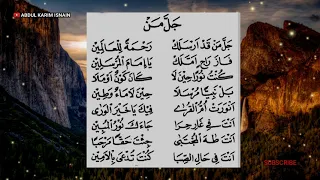 ABDUL KARIM ISNAIN
جَلَّ مَنْ
جَلَّ مَنْ قَدْ اَرْسَلَكْ رَحْمَةً لِلْعَالَمِيْنَ
فَازَ رَاجٍ اَمَّلَكْ يَا اِمَامَ الْمُرْسَلِيْنَ
كُنْتَ نُوْرًا حِيْنَ لَا كَانَ كَوْنٌ اَوْ مَلَا
بَلْ نَبِيًّا مُرْسَلًا حِيْنَ لَا مَاءٌ وَطِيْنَ
نَوَّرَتْ اُمُّ الْقُرٰى فِيْكَ يَا خَيْرَ الْوَرٰى
اَنْتَ فِيْ غَارِ حِرَا جَاءَكَ نُوْرُ الْمُبِيْنَ
اَنْتَ طٰهَ الْمُجْتَبٰى جِئْتَ حَقًّا مَرْحَبًا
اَنْتَ فِيْ حَالِ الصِّبَا كُنْتَ تُدْعٰى بِالْاَمِيْنَ